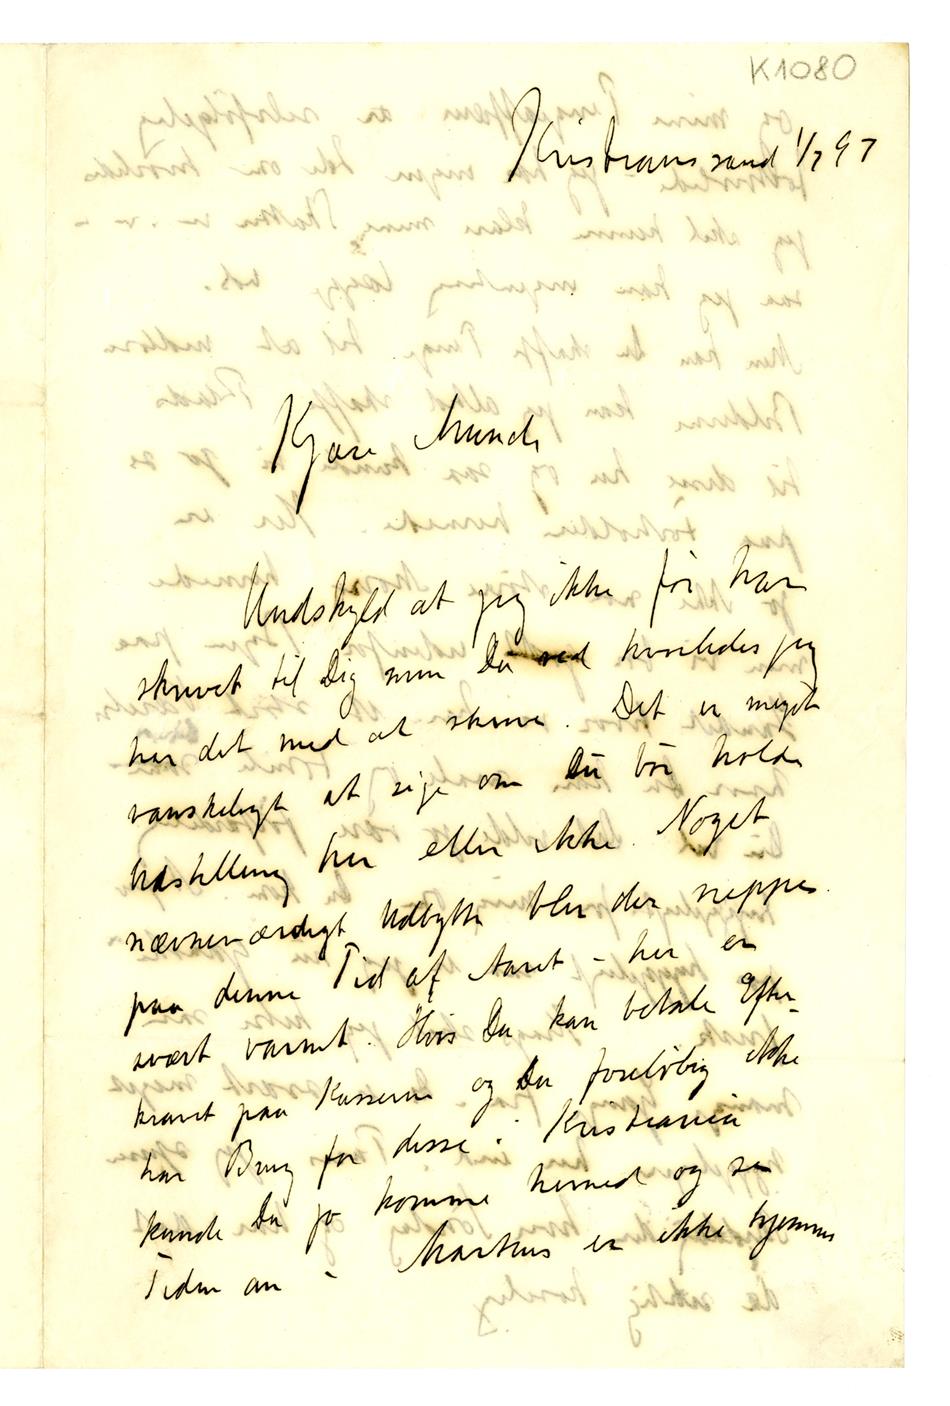 K1080
Kristianssand 1/7 97
Kjære Munch
Undskyld at jeg ikke før har
skrevet til Dig men Du ved hvorledes jeg
har det med at skrive. Det er meget
vanskeligt at sige om Du bør holde
Udstilling her eller ikke. Noget
nævneværdigt Udbytte blir der neppe
paa denne Tid af Aaret – her er
svært varmt. Hvis Du kan betale Efter-
kravet paa Kasserne og Du foreløbig ikke
har Brug for disse i Kristiania
kunde Du jo komme herned og se
Tiden an – Markus er ikke hjemme